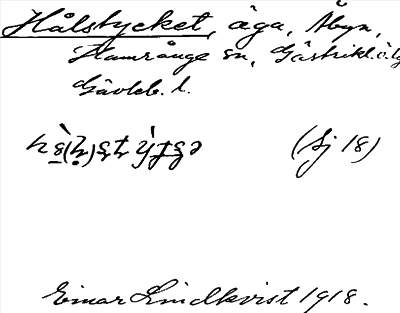 Hålstycket, äga, Åbyn,
Hamrånge sn, Gästrikl. o. lg
Gävleb. l.
(Sj 18)
Einar Lindkvist 1918.